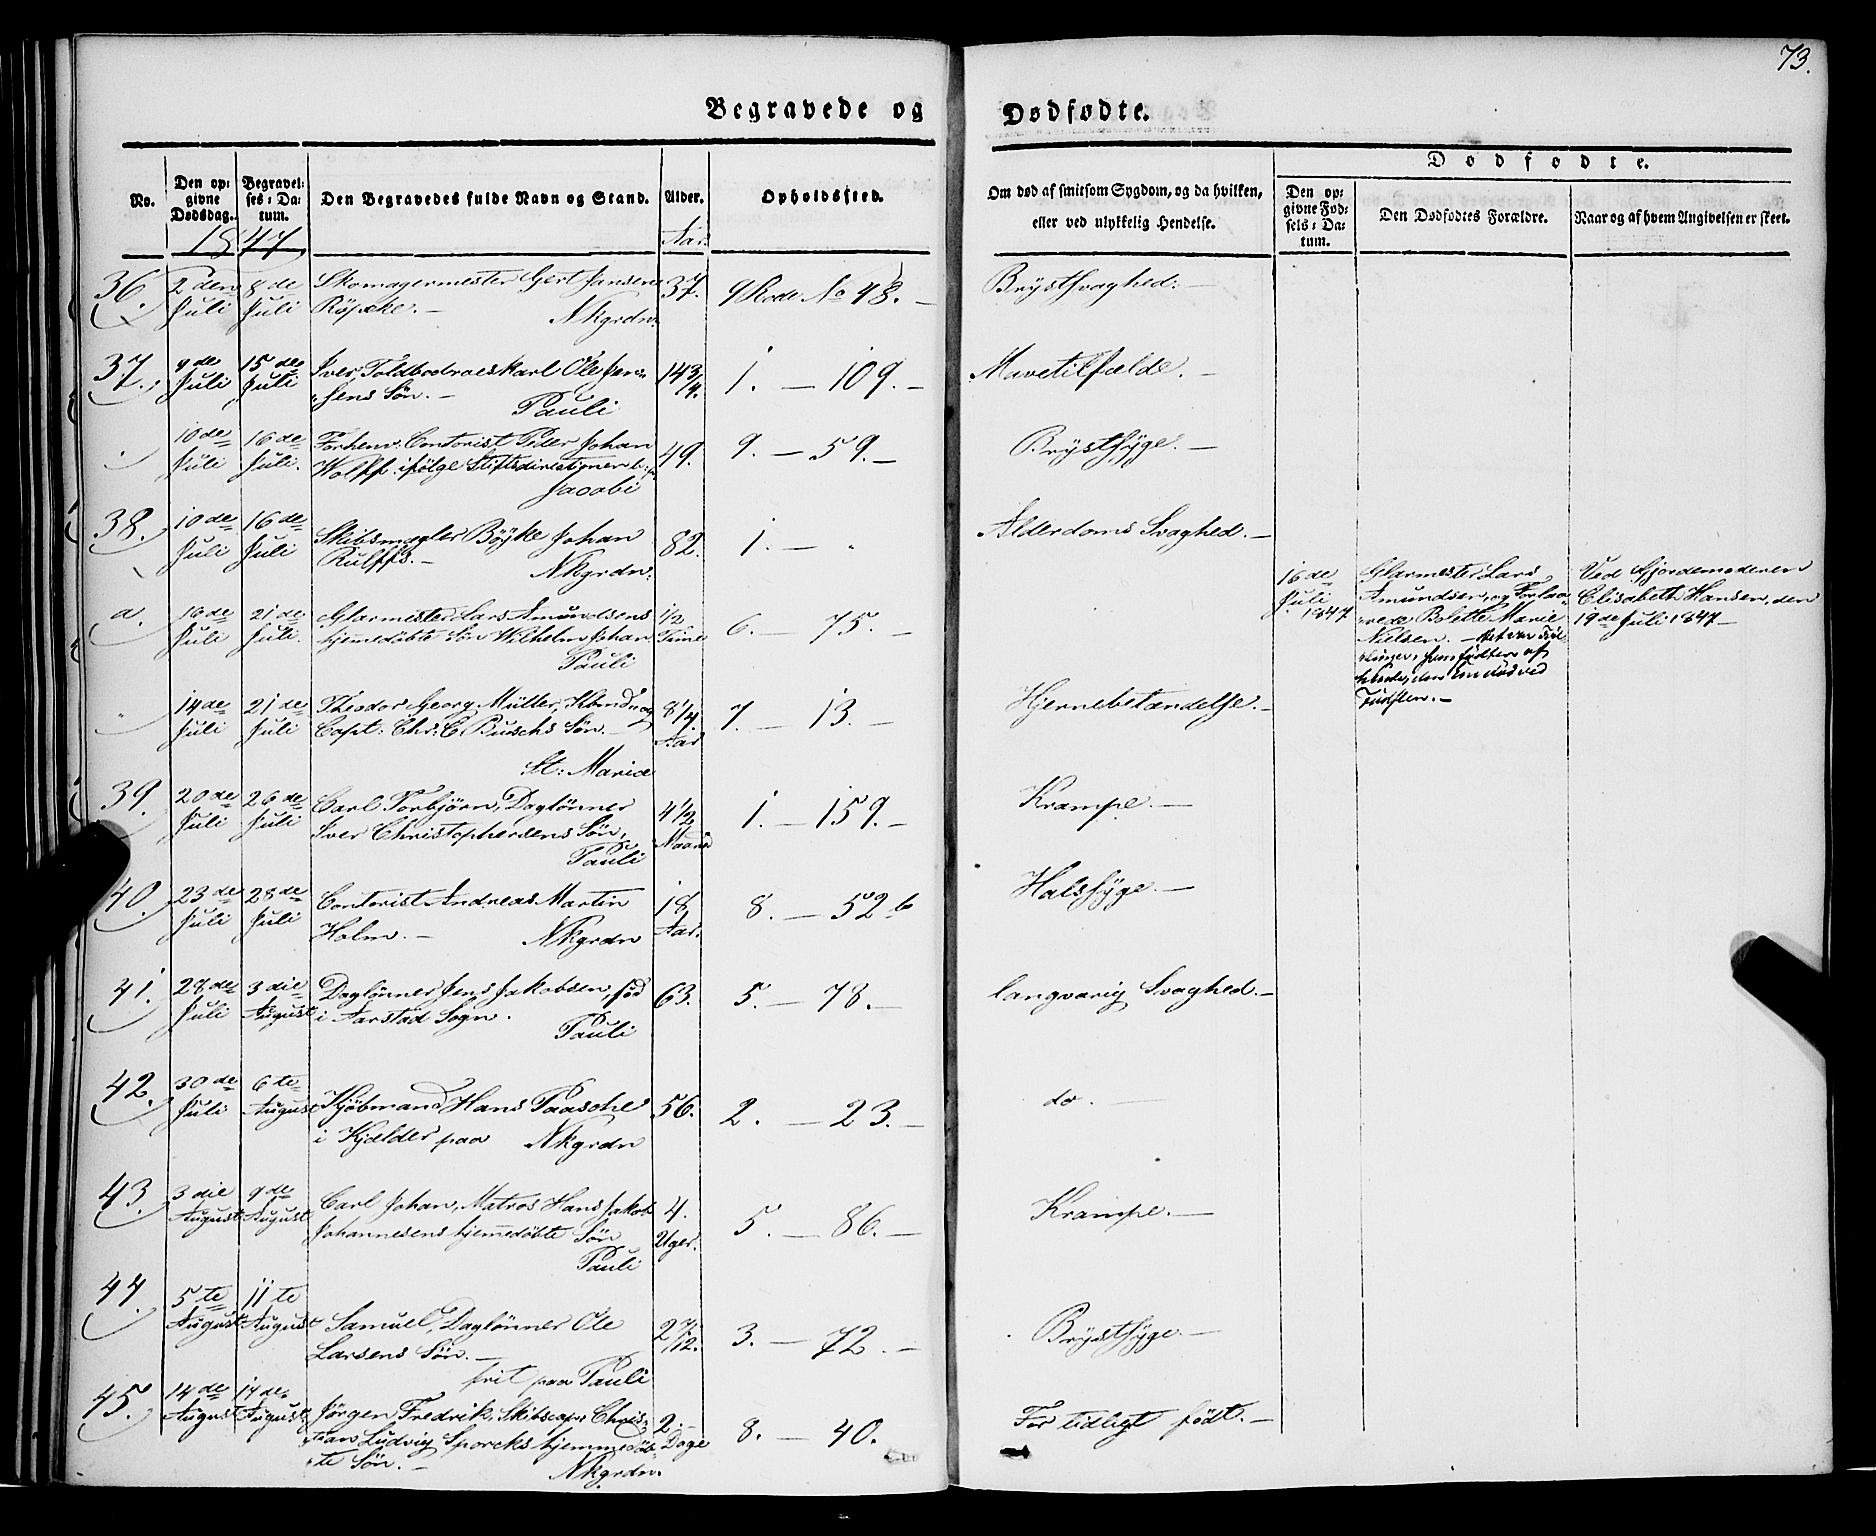 73.
Begravede og Dodfodte.
No.
Den opgivne Dødsdag.
Begravelses-Datum.
Den Begravedes fulde Navn og Stand.
Alder.
Opholdssted.
Om død af smitsom Sygdom, og da hvilken,
eller ved ulykkelig Hendelse.
Dodfodte.
Den opgivne Fødsels-Datum.
Den Dødfødtes Forældre.
Naar og af hvem Angivelsen er skeet.
1847
Aar
36. 2den Juli 8de Juli Skomagermester Gert Jansen 37. 9 Rode No 48. – Brystsvaghed. –
Röpcke. – Nkgrdn.
37. 9de Juli 15de Juli Iver, Toldbodroeskarl Ole Jen- 14 3/4. 1. – 109. – Mavetilfælde. –
sens Søn. – Pauli
10de Juli 16de Juli. Forhenv. Contorist Peder Johan 49. 9. – 59. – Brystsyge. –
Wolff. ifølge Stiftsdirectionen
Jacobi
38. 10de Juli 16de Juli Skibsmægler Böyke Johan 82. 1. – " Alderdoms Svaghed. –
Rulffs. – Nkgrdn.
a. 16de Juli 21de Juli. Glarmester Lars Amundsens 1/2 Time 6. – 75. –
hjemmedøbte Søn Wilhelm Johan
Pauli
16de Juli 1847
Glarmester Lars
Amundsen, og Forlo-
vede Bolette Marie
Nielsen. – Det var
den Ene død ved
Fødselen. –
Ved Gjordemoderen
Elisabeth Hansen, den
19de Juli 1847 –
" 14de Juli 21de Juli Theodor Georg Müller, 8 1/4 Aar 7. – 13. – Hjernebetændelse. –
Capt: Chr. C. Buschs Søn. –
St: Mariæ
39. 20de Juli 26de Juli Carl Torbjörn, Daglönner 4 1/2 Maaned 1. – 159. – Krampe. –
Iver Christophersens Søn,
Pauli
40. 23de Juli 28de Juli Contorist Andreas Martin 18 Aar. 8. – 52 b Halssyge. –
Holm. – Nkgrdn
41. 28de Juli 3die August Daglönner Jens Jakobsen, fød 63. 5. – 78. – langvarig Svaghed. –
i Aarstad Sogn. Pauli
42. 30de Juli 6te August Kjöbmand Hans Paasche 56. 2. – 23. – do. –
i Kjælder paa Nkgrdn
43. 3die August 9de August Carl Johan, Matros Hans Jakob 4. Uger. 5. – 86. – Krampe. –
Johannesens hjemmedöbte Søn
Pauli
44. 5te August 11te August Samuel, Daglönner Ole 2 7/12. 3. – 72. – Brystsyge. –
Larsens Søn. –
frit paa Pauli
45. 14de August 17de August Jörgen Fredrik, Skibscapt: Chris- 2. – Dage 8. – 40. For tidligt födt. –
tians Ludvig Sporcks hjemmedöb-
te Søn. – Nkgrdn.